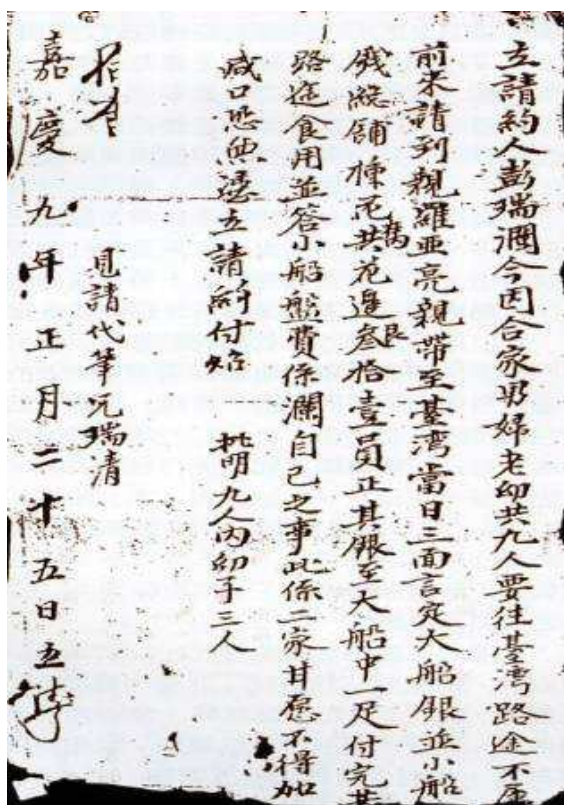 立請約人彭瑞瀾今因合家男婦老幼共九人要往臺灣路途不
前來請到親羅亚亮親帶至臺灣當日三面言定大船銀並小船
銭總鋪 花共花邊銀叁拾壹員正其銀至大船中一足付完其
路途食用並答小船盤費係瀾自己之事此係二家甘愿不得加
减口恐無憑立請約付炤 批明九人内幼子三人
見請代筆兄瑞清
嘉慶九年正月二十五日立